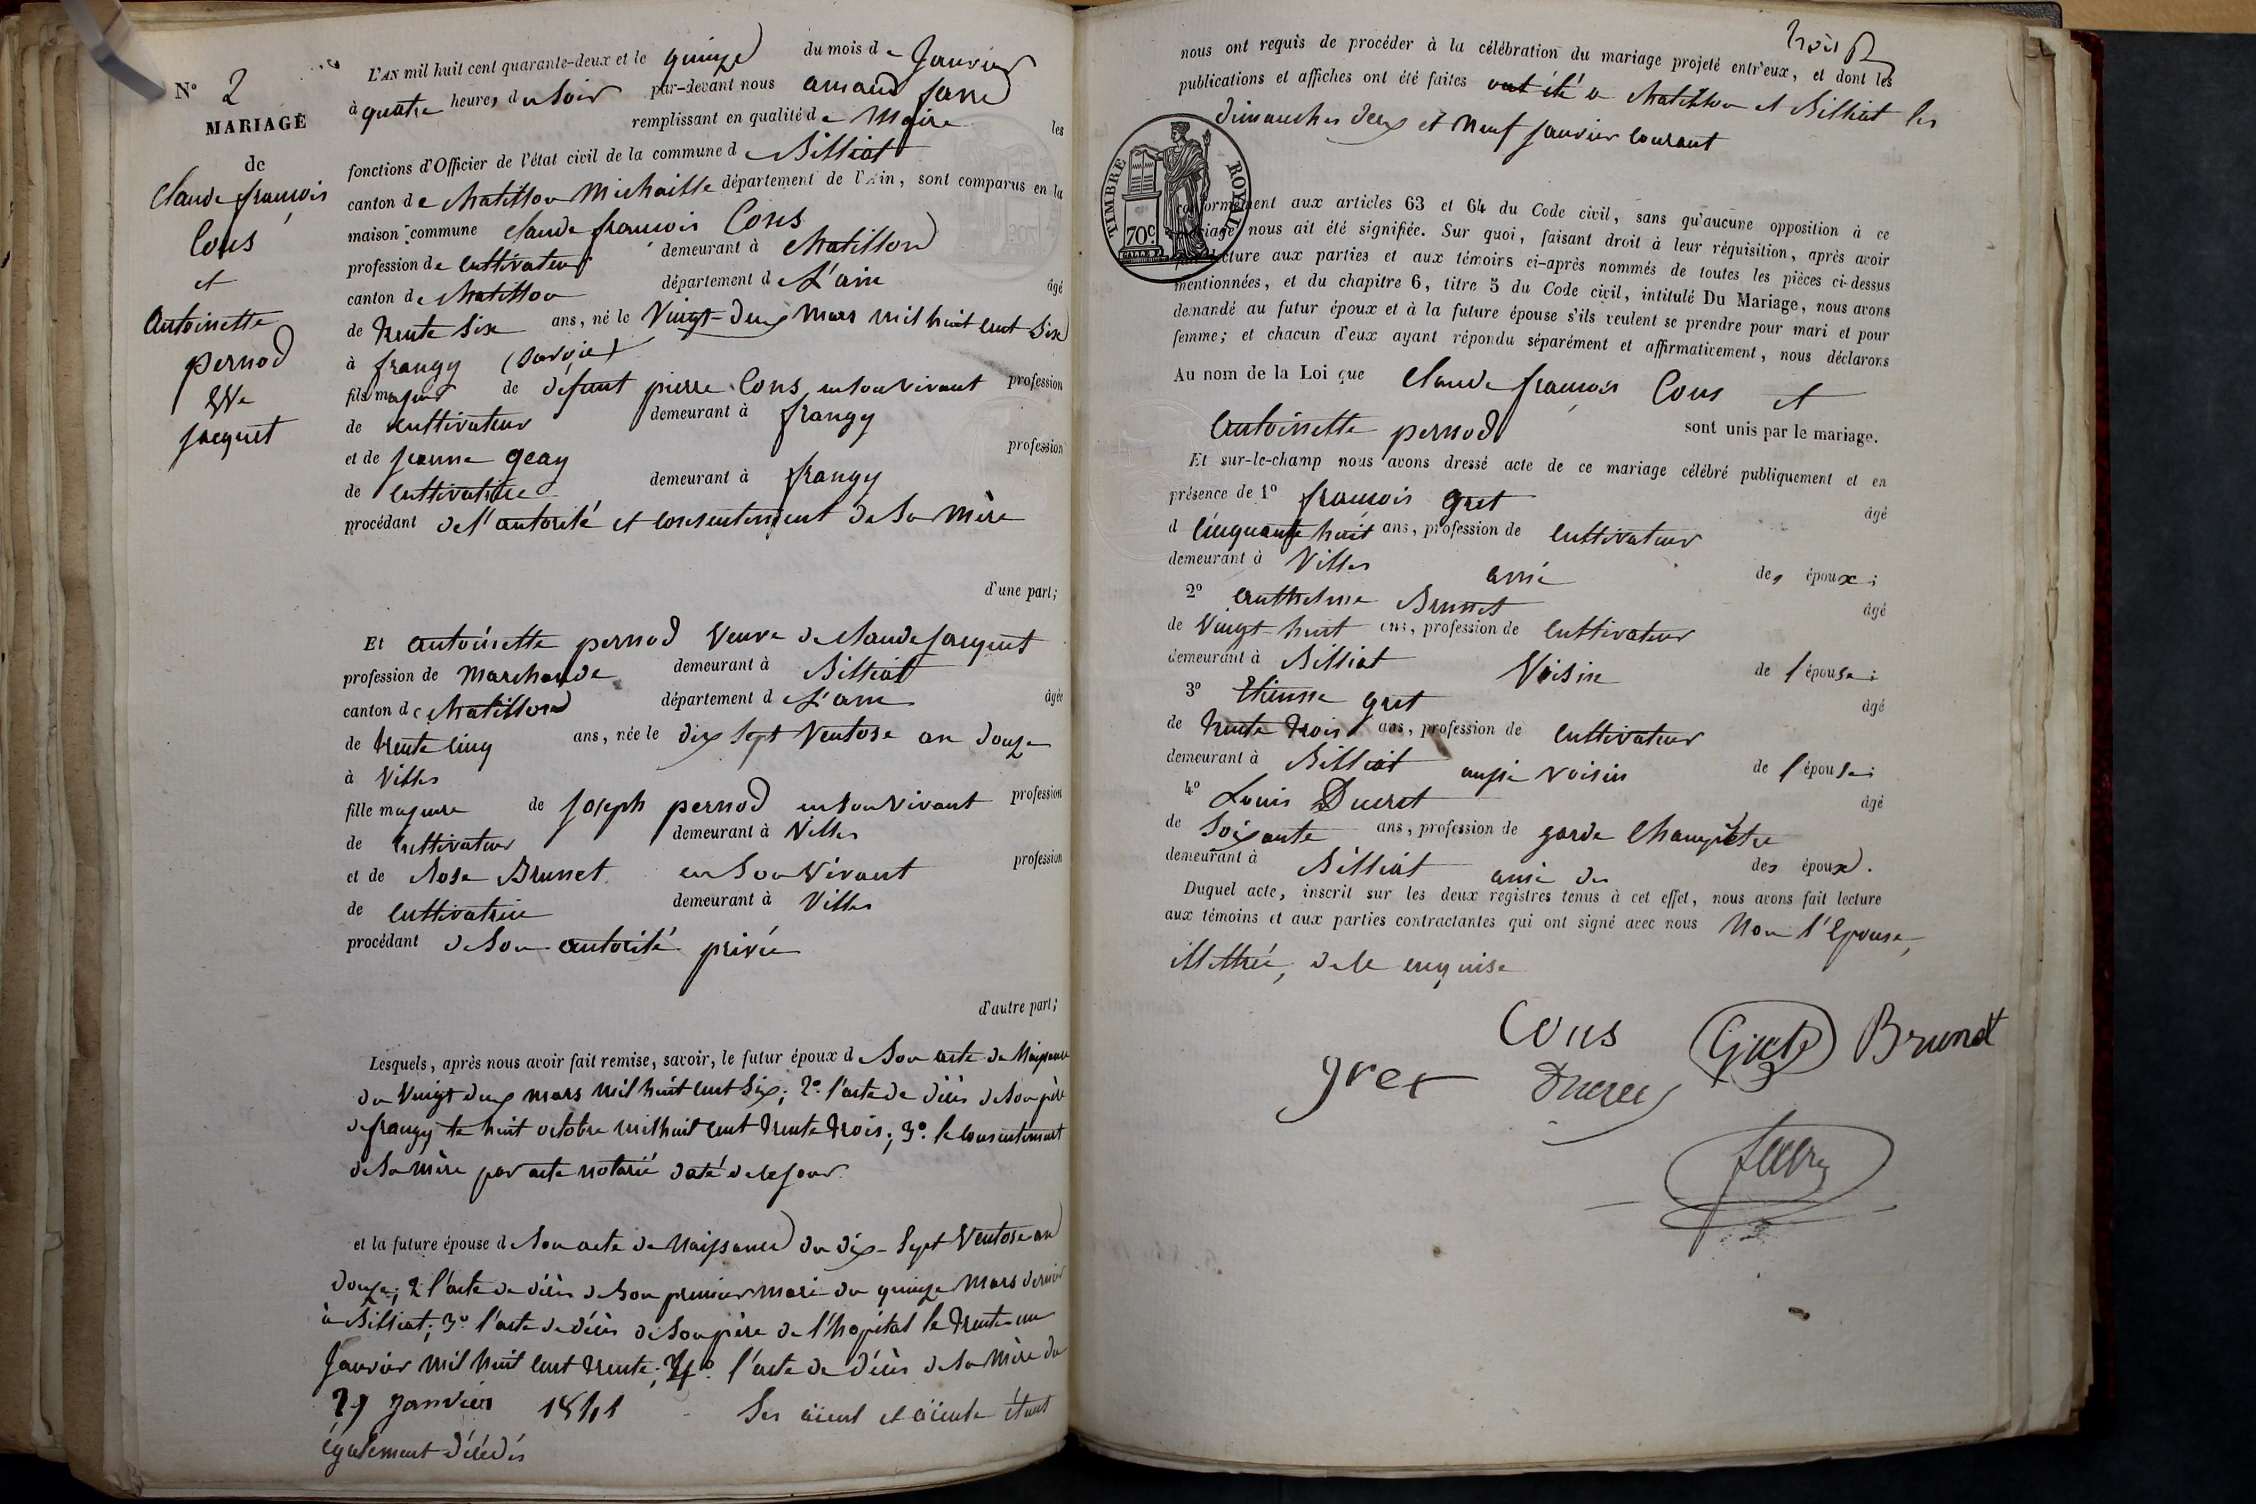 N° 2
MARIAGE
de
Claude françois
Cons
et
Antoinette
pernod
Vve
jacquet
L'AN mil huit cent quarante-deux et le quinze du mois de Janvier
à quatre heures du Soir par-devant nous amand favre
remplissant en qualité de Maire les
fonctions d'Officier de l'état civil de la commune de Billiat
canton de Chatillon Michaille département de l'Ain, sont comparus en la
maison commune Claude françois Cons
profession de Cultivateur demeurant à Chatillon
canton de Chatillon département de L'ain âgé
de trente Six ans, né le Vingt-deux Mars mil huit cent Six
à frangy (Savoie)
fils majeur de défunt pierre Cons, en son vivant profession
de cultivateur demeurant à frangy
et de jeanne geay profession
de Cultivatrice demeurant à frangy
procédant de l'autorité et consentement de Sa Mère
d'une part;
Et antoinette pernod Veuve de Claude Jacquet
profession de Marchande demeurant à Billiat
canton de Chatillon département de L'ain âgée
de trente cinq ans, née le dix Sept Ventose an douze
à Villes
fille majeure de joseph pernod en son vivant profession
de Cultivateur demeurant à Villes
et de Rose Brunet en Son Vivant profession
de Cultivatrice demeurant à Villes
procédant de Son autorité privée
d'autre part;
Lesquels, après nous avoir fait remise, savoir, le futur époux de Son acte de Naissance
du Vingt deux mars mil huit cent Six; 2° l'acte de décès de Son père
de frangy le huit octobre mil huit cent trente trois; 3° le consentement
de Sa Mère par acte notarié daté de ce jour.
et la future épouse de Son acte de Naissance du dix-Sept Ventose an
douze; 2 l'acte de décès de Son premier mari du quinze Mars dernier
à Billiat; 3° l'acte de décès de Son père de l'hopital le trente un
Janvier mil huit cent trente; 4° l'acte de décès de Sa Mère du
29 janvier 1841 Ses aïeul et aïeule étant
également décédés
trois
nous ont requis de procéder à la célébration du mariage projeté entr'eux, et dont les
publications et affiches ont été faites ont été à Chatillon et Billiat les
dimanches deux et Neuf Janvier Courant
TIMBRE ROYAL
70 c.
conformément aux articles 63 et 64 du Code civil, sans qu'aucune opposition à ce
mariage nous ait été signifiée. Sur quoi, faisant droit à leur réquisition, après avoir
fait lecture aux parties et aux témoirs ci-après nommés de toutes les pièces ci-dessus
mentionnées, et du chapitre 6, titre 5 du Code civil, intitulé Du Mariage, nous avons
demandé au futur époux et à la future épouse s'ils veulent se prendre pour mari et pour
femme; et chacun d'eux ayant répondu séparément et affirmativement, nous déclarons
Au nom de la Loi que Claude françois Cons et
Antoinette pernod sont unis par le mariage.
Et sur-le-champ nous avons dressé acte de ce mariage célébré publiquement et en
présence de 1° françois gret âgé
d Cinquante huit ans, profession de Cultivateur
demeurant à Villes ami des époux;
2° anthelme Brunet âgé
de Vingt-huit ans, profession de Cultivateur
demeurant à Billiat Voisin de l'épouse;
3° Etienne gret âgé
de trente trois ans, profession de Cultivateur
demeurant à Billiat aussi voisin de l'épouse;
4° Louis Ducret âgé
de Soixante ans, profession de garde Champêtre
demeurant à Billiat ami des des époux.
Duquel acte, inscrit sur les deux registres tenus à cet effet, nous avons fait lecture
aux témoins et aux parties contractantes qui ont signé avec nous Non l'Epouse,
illettrée, de ce enquise
Cons Brunet
gret Ducret
favre